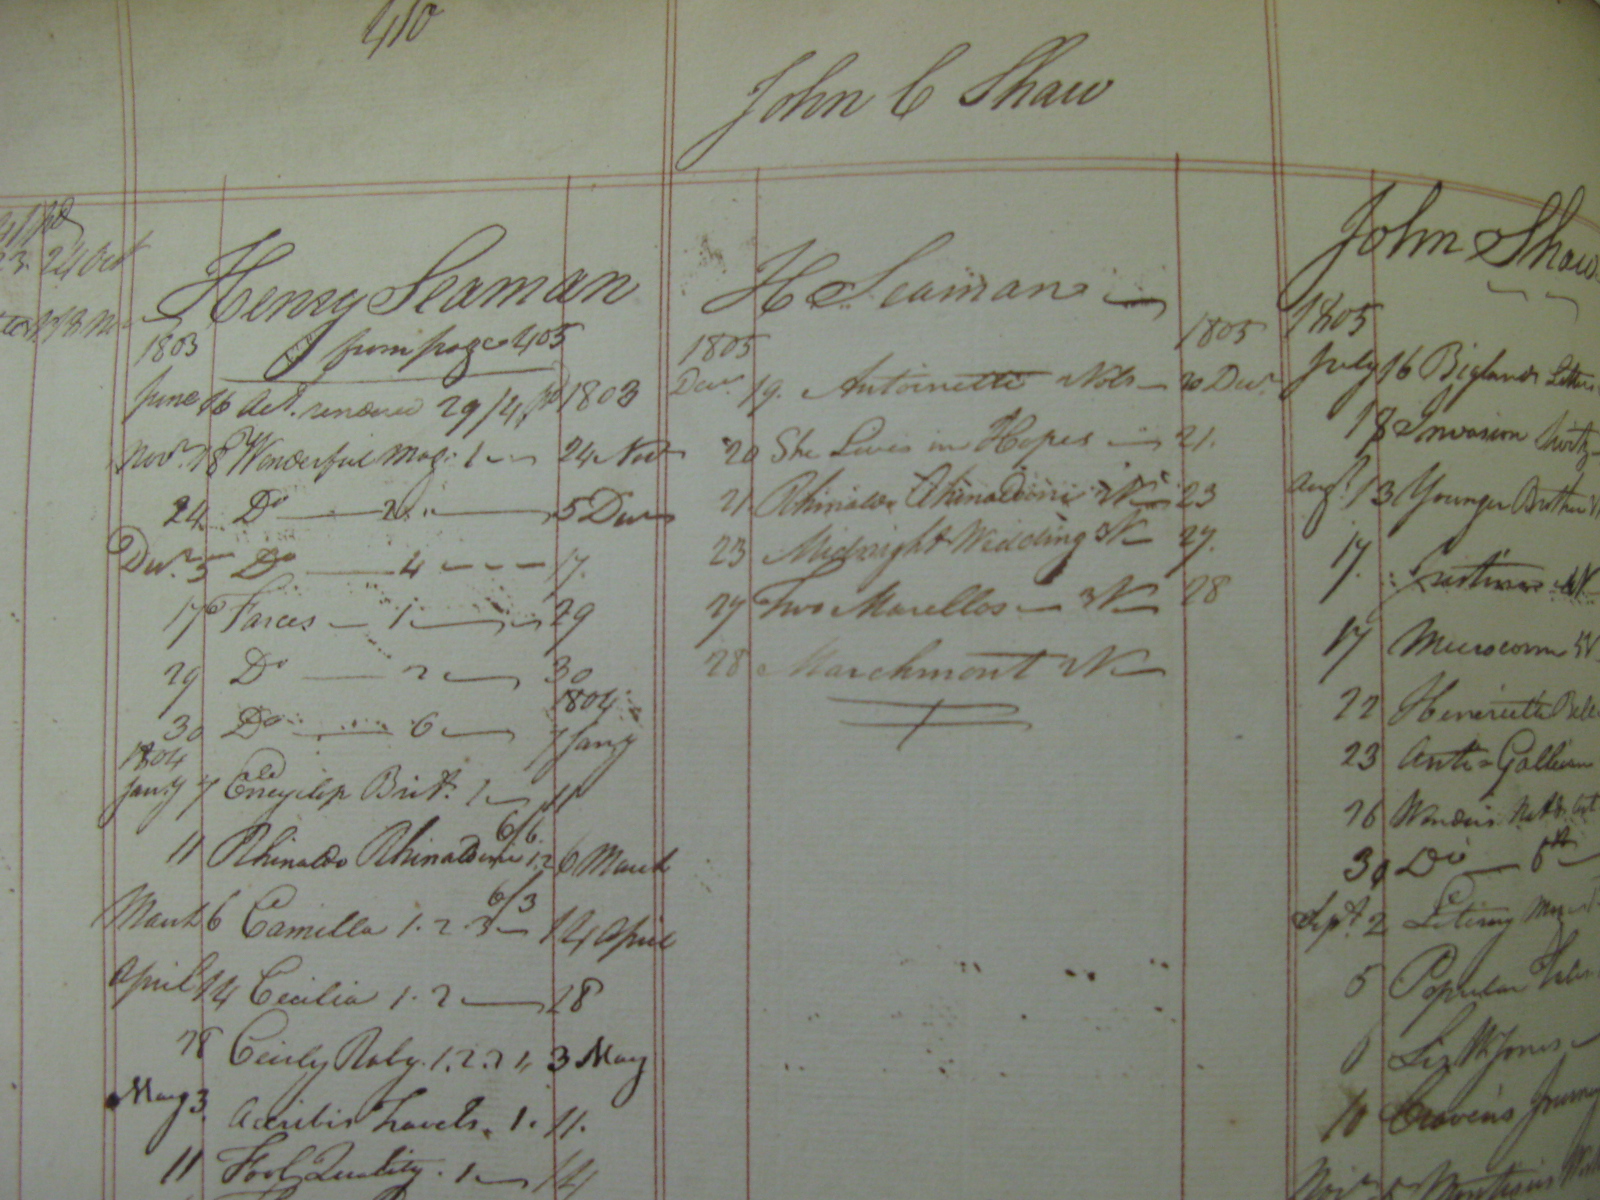 410
John C Shaw
24 Oct
Henry Seaman
1803 from page 405
June 16 Act. rendered 29/4 pd 1803
Novr. 18 Wonderful Mag. 1 — 24 Nov
24 Do — 2 — 5 Decr
Decr. 5 Do — 4 — 17.
17 Farces — 1 — 29
29 Do — 2 — 30
1804
30 Do — 6 — 7 Jany
1804
Jany 7 Encyclop Brit. 1 — 11
6/6
11 Rhinaldo Rhinaldini 1.2 6 March
6/3
March 6 Camilla 1. 2. 3 — 14 April
April 14 Cecilia 1. 2 — 28
28 Ceicly Raby. 1. 2. 3 4 3 May
May 3. Acerbis Travels. 1. 11.
11 Fool Quality. 1 — 14
H Seaman —
1805 1805
Decr. 19. Antoinette 2 Vols — 20 Decr.
20 She Lives in Hopes — 21.
21 Rhinaldo Rhinaldini 2V — 23
23 Midnight Wedding 3V — 27.
27 Two Marellos — 3V — 28
28 Marchmont 2V —
John Shaw
1805
July 16 Biglands Letters
18 Invasion
Augt. 13 Younger Brother
17.
17 Microcosm
22 Henriette Belle
23 Anti-Gallican
26
30 Do — 6th —
Sept. 2 Literary
5 Popular Tales
6 Sir Wm Jones —
10 Cravens Journey
Novr